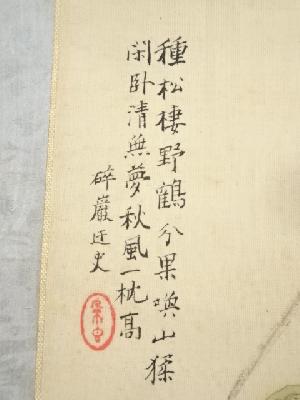 種松棲野鶴分果喚山猱
閑卧清無夢秋風一枕高
碎巖迂史